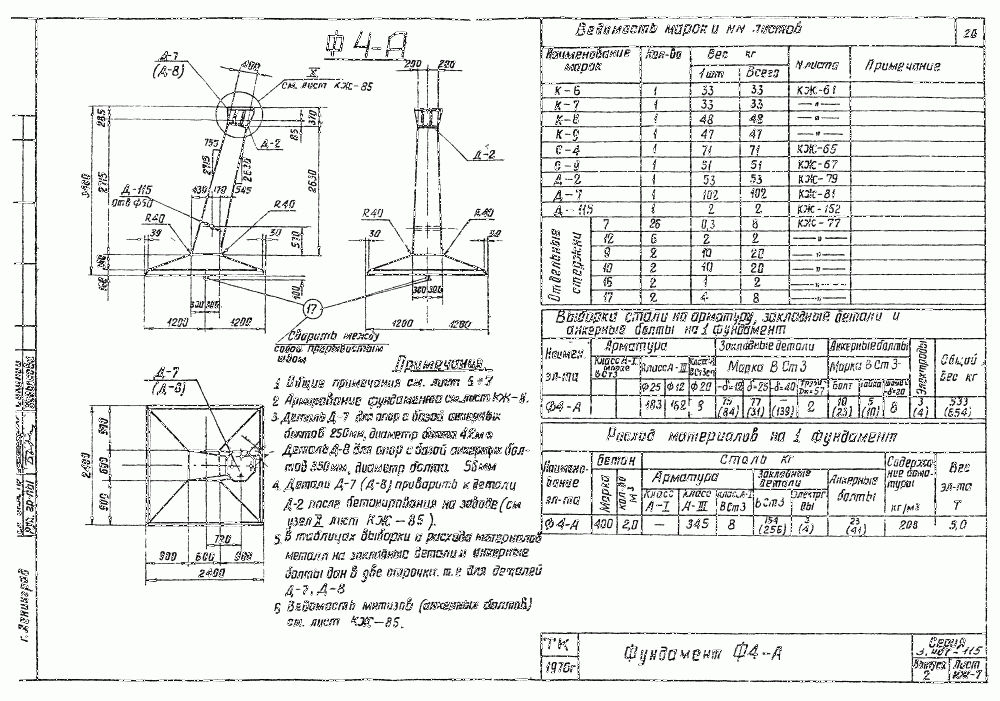 Ф 4-А
Д-7
(Д-8)
400
X
см. лист КЖ-85
Д-2
285
2715
3480
310
85
2630
755
2715
2630
430 170 545
Д-115
отв Ф50
R40
R40
30
30
570
100
300 300
1200 1200
290 290
Д-2
R40
R40
30
30
300 300
1200 1200
17
Сварить между
собой прерывистым
швом
Д-7
(Д-8)
2400
600
720
900 600 900
2400
Примечание
1. Общие примечания см. лист
2. Армирование фундамента см. лист КЖ-8.
3. Деталь Д-7 для опор с базой анкерных
болтов 250мм, диаметр болта 42мм
Деталь Д-8 для опор с базой анкерных бол-
тов 350мм, диаметр болта 56мм
4. Детали Д-7 (Д-8) приварить к детали
Д-2 после бетонирования на заводе (см
узел X лист КЖ-85).
5. В таблицах выборки и расхода материалов
металл на закладные детали и анкерные
болты дан в две строчки т.к для деталей
Д-7, Д-8
6. Ведомость метизов (анкерных болтов)
см. лист КЖ-85.
г. Ленинград
26
Ведомость марок и NN листов
Наименование марок Кол-во Вес кг N листа Примечание
1 шт Всего
К-6 1 33 33 КЖ-61
К-7 1 33 33 —"—
К-8 1 48 48 —"—
К-9 1 47 47 —"—
С-4 1 71 71 КЖ-65
С-9 1 51 51 КЖ-67
Д-2 1 53 53 КЖ-79
Д-7 1 102 102 КЖ-81
Д-115 1 2 2 КЖ-152
Отдельные стержни
7 26 0,3 8 КЖ-77
12 6 2 2 —"—
9 2 10 20 —"—
10 2 10 20 —"—
15 2 1 2 —"—
17 2 4 8 —"—
Выборка стали на арматуру, закладные детали и
анкерные болты на 1 фундамент
Наимен. эл-та Арматура Закладные детали Анкерные болты Электроды Общий вес кг
Класс А-I марка ВСт3 Класс А-III Марка ВСт3 Марка ВСт3
Ф25 Ф12 Ф20 δ=25 δ=40 Болт Гайка
Ф4-А 183 162 8 75 (84) 77 (31) — (139) 2 10 (23) 5 (10) 8 3 (4) 533 (654)
Расход материалов на 1 фундамент
Наимено- вание эл-та Бетон Сталь кг Содержа- ние арма- туры кг/м3 Вес эл-та Т
Марка Кол-во м3 Арматура Закладные детали Анкерные болты
Класс А-I Класс А-III Класс А-I ВСт3 ВСт3 Электро- ды
Ф4-А 400 2,0 — 345 8 154 (256) 3 (4) 23 (41) 208 5,0
ТК
1976г
Фундамент Ф4-А
Серия
3.407-115
Выпуск 2
Лист КЖ-7